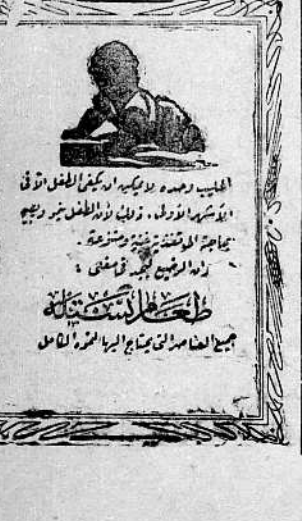 الحليب وحده لا يمكن ان يكفي الطفل الا في
الأشهر الأولى، وذلك لأن الطفل ينمو ويصبح
بحاجة الى تغذية غنية ومتنوعة.
وان الرضيع ليجد في مغلي :
طعام نستيله
جميع العناصر التي يحتاج اليها لنموه الكامل